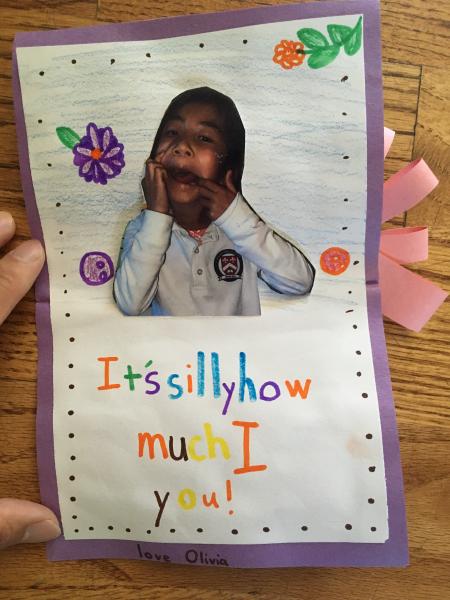 It's silly how
much I
you!
love Olivia